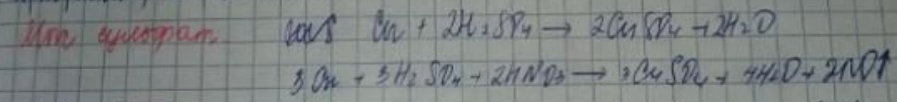 Cu + 2H₂SO₄ → 2CuSO₄ + 2H₂O
3Cu + 3H₂SO₄ + 2HNO₃ → 3CuSO₄ + 4H₂O + 2NO↑